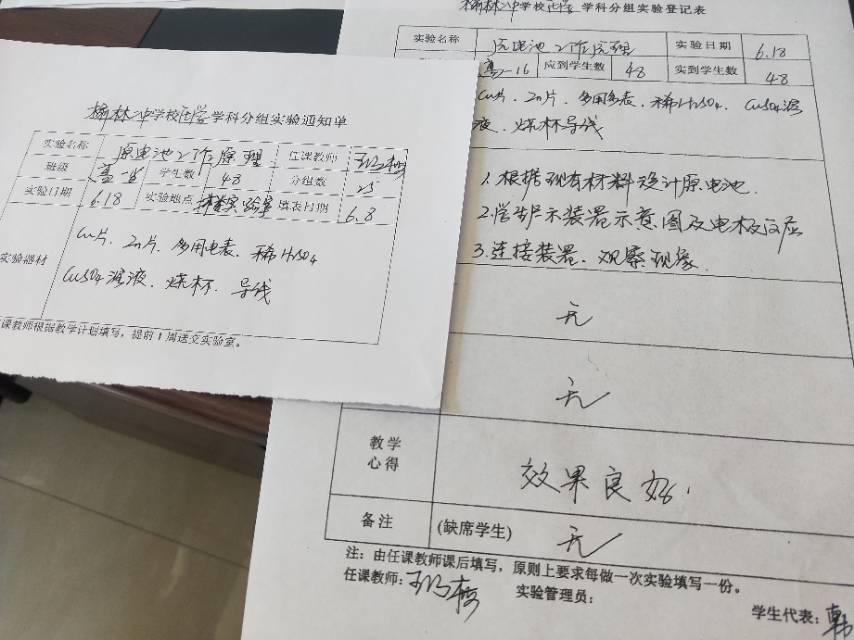 榆林八中学校化学学科分组实验通知单
实验名称 原电池工作原理 任课教师
班级 高一16 学生数 48 分组数 25
实验日期 6.18 实验地点 实验室 填表日期 6.8
实验器材 Cu片、Zn片、多用电表、稀H₂SO₄
CuSO₄溶液、烧杯、导线
课教师根据教学计划填写，提前1周送交实验室。
榆林八中学校化学学科分组实验登记表
实验名称 原电池工作原理 实验日期 6.18
高一16 应到学生数 48 实到学生数 48
Cu片、Zn片、多用电表、稀H₂SO₄、CuSO₄溶
液、烧杯导线
1.根据现有材料设计原电池.
2.装置示意图及电极反应
3.连接装置、观察现象.
无
无
教学
心得 效果良好.
备注 (缺席学生) 无
注：由任课教师课后填写，原则上要求每做一次实验填写一份。
任课教师: 实验管理员: 学生代表: 韩